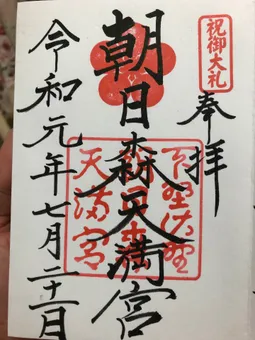 祝御大礼
奉拝
朝日森天満宮
下野佐野
天満宮
令和元年七月二十一日